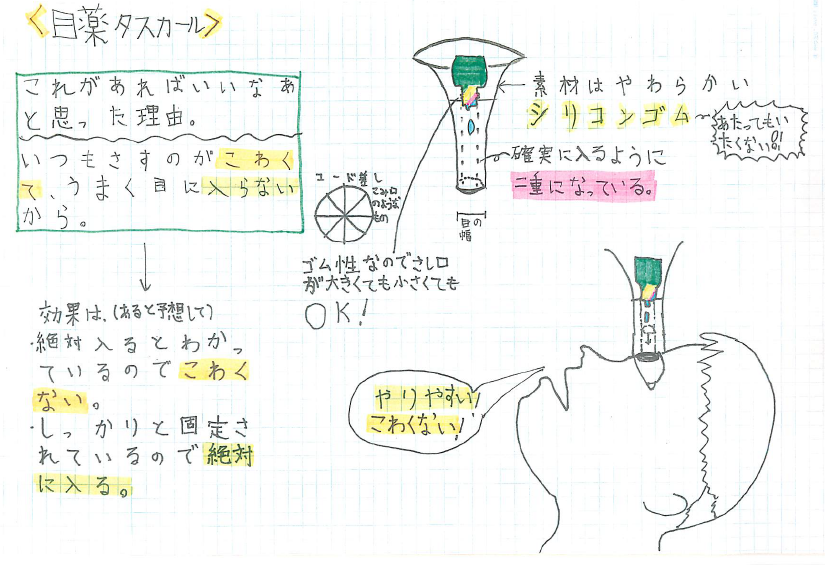 <目薬タスカール>
これがあればいいなぁ
と思った理由。
いつもさすのがこわく
て、うまく目に入らない
から。
効果は、(あると予想して)
・絶対入るとわかっ
ているのでこわく
ない。
・しっかりと固定さ
れているので絶対
に入る。
コード差し
こみ口
のような
もの
ゴム性なのでさし口
が大きくても小さくても
OK!
素材はやわらかい
シリコンゴム
あたってもい
たくない!!
確実に入るように
二重になっている。
目の
幅
やりやすい!
こわくない!